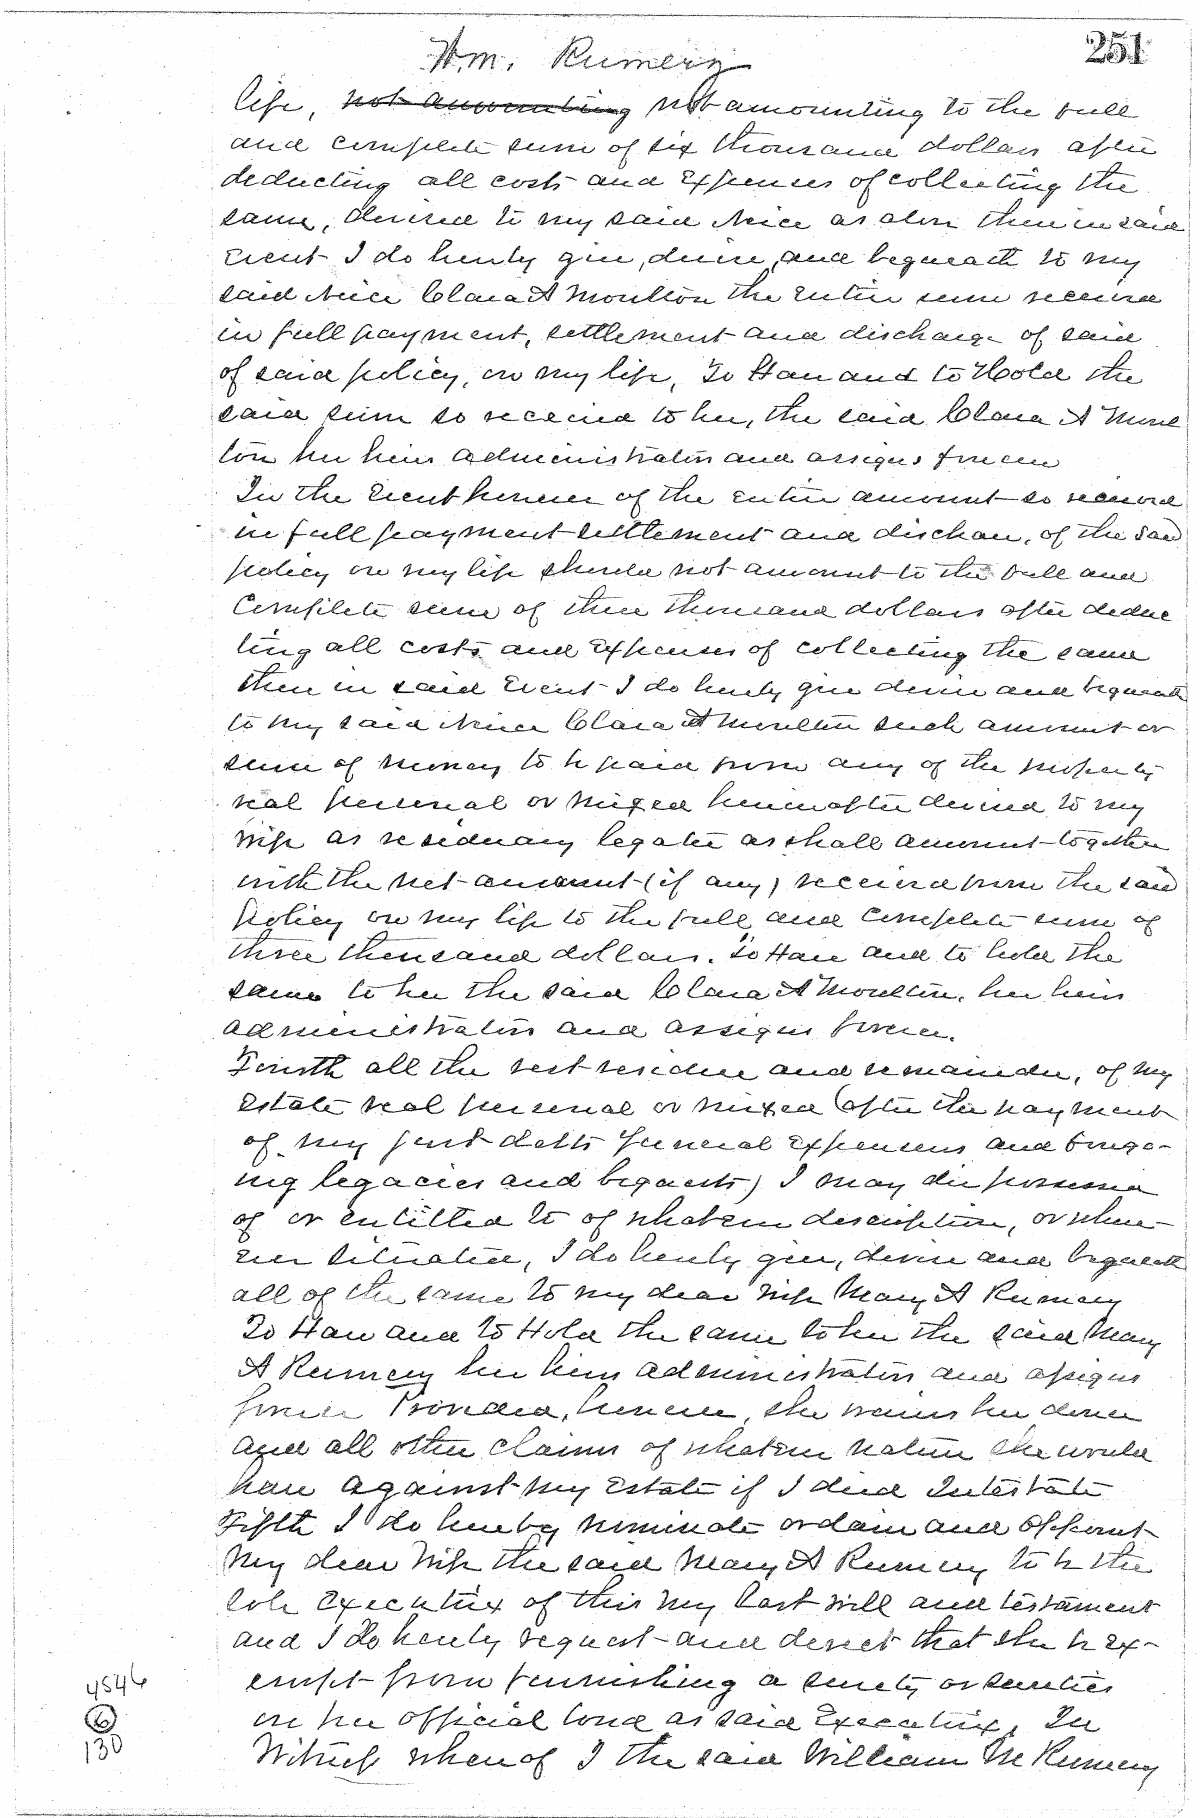 251
Wm. Rumery
life, not amounting not amounting to the full
and complete sum of six thousand dollars after
deducting all costs and expenses of collecting the
same, devised to my said Niece as abov then in said
event I do hereby give, devise, and bequeath to my
said Niece Clara A Moulton the entire sum received
in full payment, settlement and discharge of said
of said policy, on my life, To Have and to Hold the
said sum so received to her, the said Clara A Moul
ton her heirs administrators and assigns forever
In the Event however of the entire amount so received
in full payment settlement and discharge, of the said
policy on my life should not amount to the full and
Complete sum of three thousand dollars after deduc
ting all costs and expenses of collecting the same
then in said Event I do hereby give devise and bequeath
to my said Niece Clara A Moulton such amount or
sum of money to be paid from any of the property
real personal or mixed hereinafter devised to my
wife as residuary legatee as shall amount together
with the net amount (if any) received from the said
policy on my life to the full and complete sum of
three thousand dollars. To Have and to hold the
same to her the said Clara A Moulton, her heirs
administrators and assigns forever.
Fourth all the rest residue and remainder, of my
Estate real personal or mixed (after the payment
of my just debts funeral expensens and forego-
ing legacies and bequests) I may die possessed
of or entitled to of whatever description, or wher-
ever situated, I do hereby give, devise and bequeath
all of the same to my dear wife Mary A Rumery
To Have and to Hold the same to her the said Mary
A Rumery her heirs administrators and assigns
forever Provided, however, she waives her dower
and all other claims of whatever nature she would
have against my Estate if I died Intestate
Fifth I do hereby nominate ordain and appoint
my dear wife the said Mary A Rumery to be the
sole Executrix of this my last will and testament
and I do hereby request and direct that she be ex-
empt from furnishing a surety or sureties
on her official bond as said Executrix, In
Witness whereof I the said William M Rumery
4546
6
130